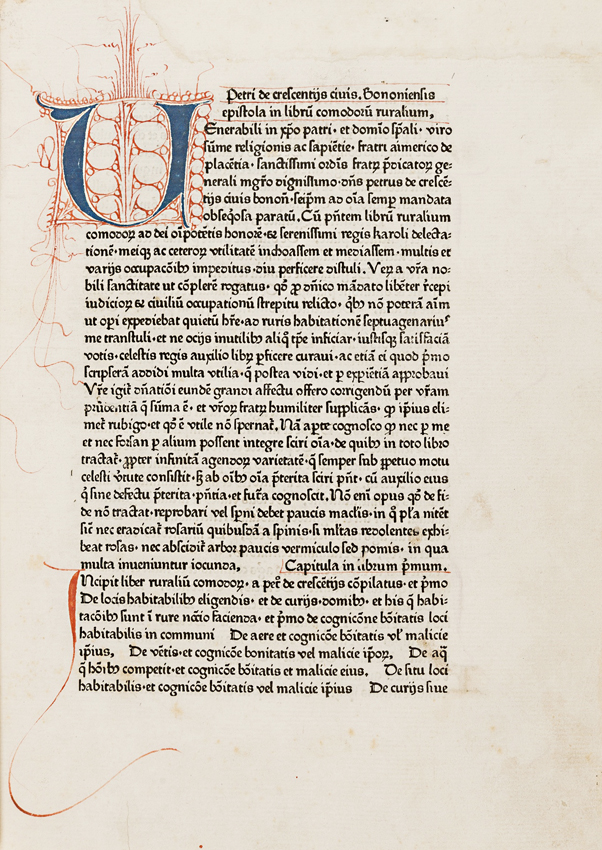 Petri de crescentijs ciuis. Bononiensis
epistola in librū comodorū ruralium,
UEnerabili in xp̄o patri · et domīo sp̄ali · viro
sūme religionis ac sapiētie · fratri aimerico de
placētia · sanctissimi ordīs fratꝝ p̄dicatoꝝ ge-
nerali mgr̄o dignissimo · dn̄s petrus de crescē-
tijs ciuis bonoñ · seip̄m ad oīa semꝑ mandata
obseq̄osa paratū. Cū pn̄tem librū ruralium
comodoꝝ ad dei oīpotētis honorē · & serenissimi regis karoli delecta-
tionē · meiqꝫ ac ceteroꝝ vtilitatē inchoassem et mediassem · multis et
varijs occupacōibꝫ impeditus · diu perficere distuli. Veꝝ a vr̄a no-
bili sanctitate ut cōplerē rogatus · qd̄ ꝑ dn̄ico mādato libēter r̄cepi
iudicioꝝ & ciuiliū occupationū strepitu relicto · qibꝫ nō poterā aīm
ut opi expediebat quietū hr̄e · ad ruris habitationē septuagenarius
me transtuli · et ne ocijs inutilibꝫ aliq̄ tp̄e inficiar · iustisqꝫ satisfaciā
votis · celestis regis auxilio libꝝ ꝑficere curaui · ac etiā ei quod p̄mo
scripserā addidi multa vtilia · q̄ postea vidi · et ꝑ expiētiā approbaui
Vr̄e igit̄ dn̄atiōi eundē grandi affectu offero corrigendū per vr̄am
prūdentiā q̄ sūma ē · et vr̄oꝝ fratꝝ humiliter supplicās · ꝙ ip̄ius eli-
met̄ rubigo · et qd̄ ē vtile nō spernat̄. Nā aꝑte cognosco ꝙ nec ꝑ me
et nec forsan ꝑ alium possent integre sciri oīa · de quibꝫ in toto libro
tractat̄ · ꝓpter infinitā agendoꝝ varietatē · q̄ semper sub ꝑpetuo motu
celesti vr̄tute consistit · sꝫ ab oībꝫ oīa p̄terita sciri pn̄t · cū auxilio eius
q̄ sine defectu p̄terita · pn̄tia · et futr̄a cognoscit. Nō enī opus qd̄ de fi-
de nō tractat · reprobari vel sꝑni debet paucis maclis · in q̄ pl̄a nitēt
sic̄ nec eradicat̄ rosariū quibusdā a spinis · si ml̄tas redolentes exhi-
beat rosas · nec abscidit̄ arbor paucis vermiculo sed pomis · in qua
multa inueniuntur iocunda, Capitula in librum p̄mum.
INcipit liber ruraliū comodoꝝ · a pet̄ de crescētijs cōpilatus · et p̄mo
De locis habitabilibꝫ eligendis · et de curijs · domibꝫ · et his q̄ habi-
tacōibꝫ sunt ī rure nc̄āio facienda · et p̄mo de cognicōne bōitatis loci
habitabilis in communi De aere et cognicōe bōitatis vl̓ malicie
ip̄ius, De vētis · et cognicōe bonitatis vel malicie ip̄oꝝ, De aq̄
q̄ hōibꝫ competit · et cognicōe bōitatis et malicie eius, De situ loci
habitabilis · et cognicōe bōitatis vel malicie ip̄ius De curijs siue